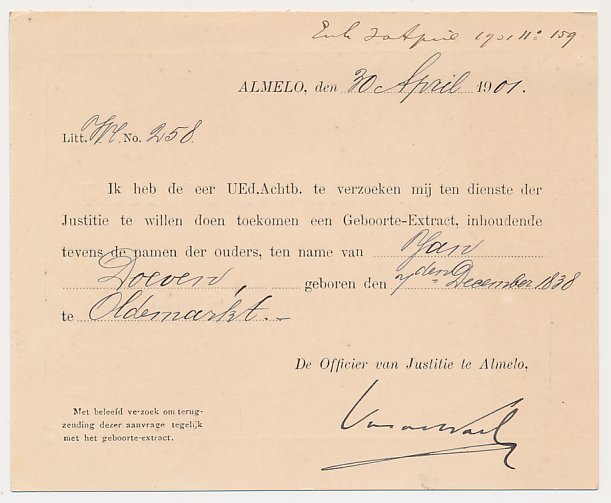 20 April 1901 N: 159
ALMELO, den 30 April 1901.
Litt. W.C. No. 258.
Ik heb de eer UEd.Achtb. te verzoeken mij ten dienste der
Justitie te willen doen toekomen een Geboorte-Extract, inhoudende
tevens de namen der ouders, ten name van Jan
Doeven, geboren den 7den December 1838
te Oldemarkt.
De Officier van Justitie te Almelo,
Met beleefd verzoek om terug-
zending dezer aanvrage tegelijk
met het geboorte-extract.